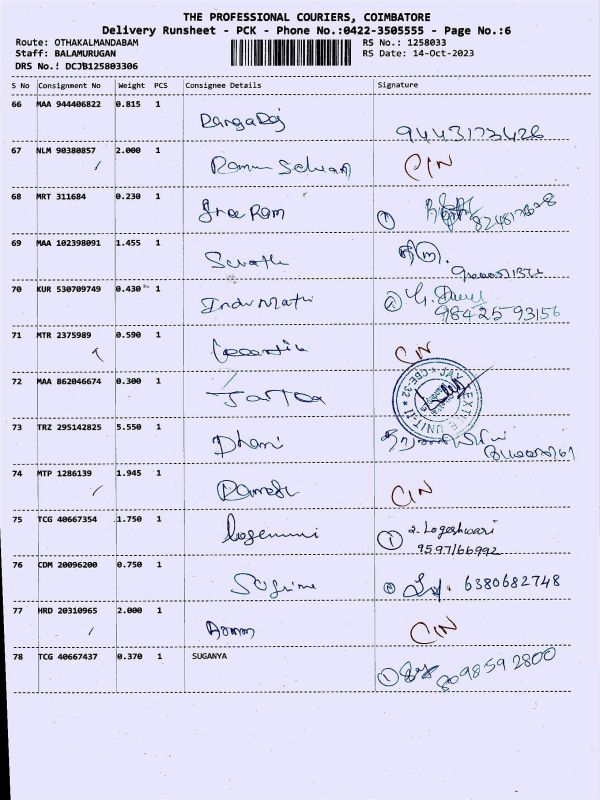 THE PROFESSIONAL COURIERS, COIMBATORE
Delivery Runsheet - PCK - Phone No.:0422-3505555 - Page No.:6
Route: OTHAKALMANDABAM RS No.: 1258033
Staff: BALAMURUGAN RS Date: 14-Oct-2023
DRS No.: DCJB125803306
S No Consignment No Weight PCS Consignee Details Signature
66 MAA 944406822 0.815 1
9443173426
67 NLM 90380857 2.000 1 CIN
68 MRT 311684 0.230 1 Sree Ram
69 MAA 102398091 1.455 1
70 KUR 530709749 0.430 1 Indumathi
9842593156
71 MTR 2375989 0.590 1 CIN
72 MAA 862046674 0.300 1
CBE-32 UNIT-II
73 TRZ 295142825 5.550 1 Dhani
74 MTP 1286139 1.945 1 Ramesh CIN
75 TCG 40667354 1.750 1 1 2. Logeshwari
9597166992
76 CDM 20096200 0.750 1 6380682748
77 HRD 20310965 2.000 1 CIN
78 TCG 40667437 0.370 1 SUGANYA 1 8098592800